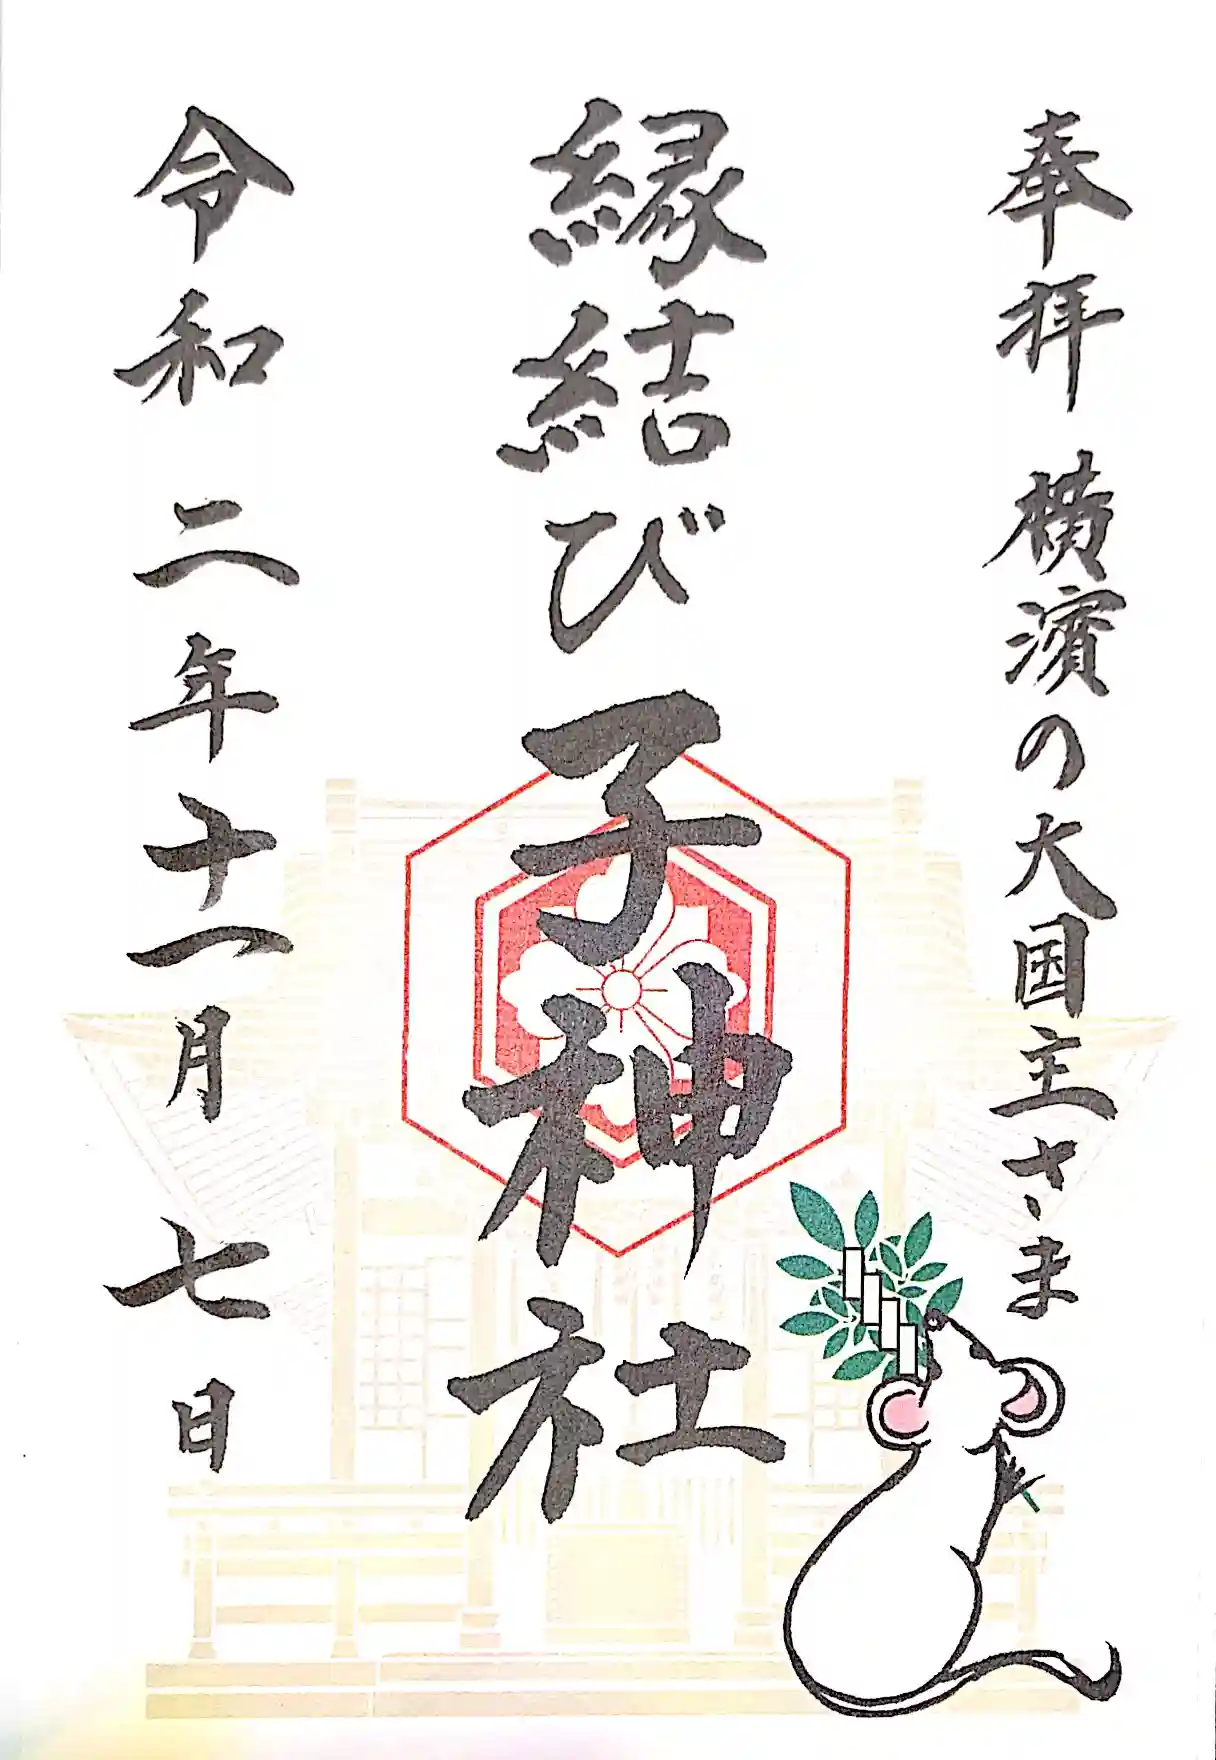 奉拝 横濱の大国主さま
縁結び 子神社
令和 二年十一月 七日